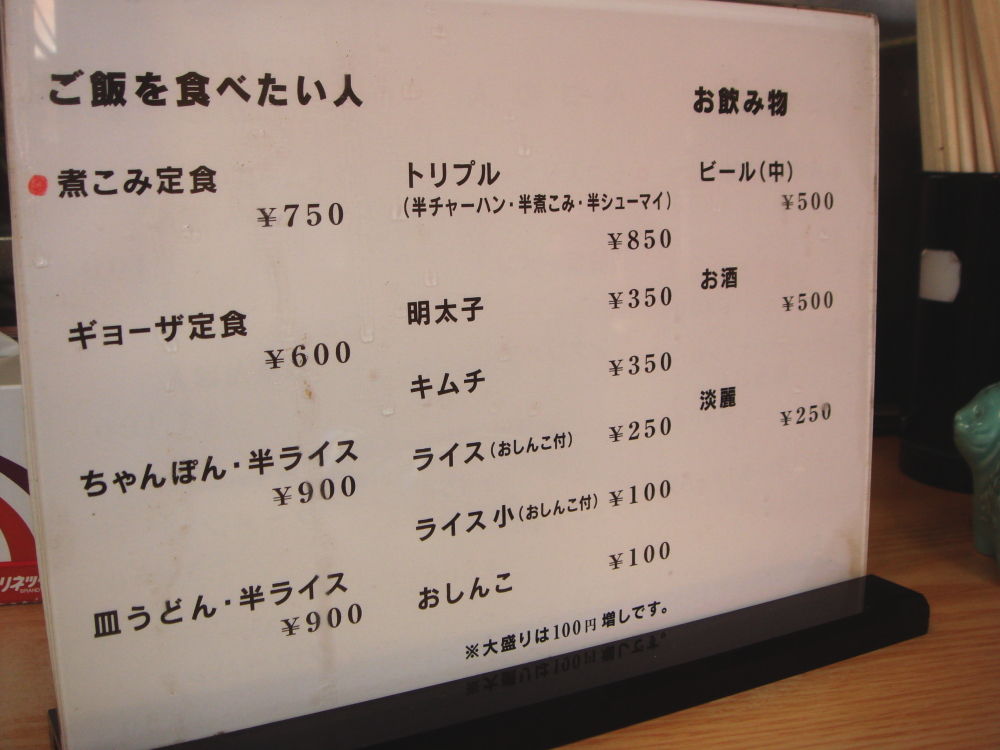 ご飯を食べたい人
煮こみ定食
¥750
ギョーザ定食
¥600
ちゃんぽん・半ライス
¥900
皿うどん・半ライス
¥900
トリプル
(半チャーハン・半煮こみ・半シューマイ)
¥850
明太子 ¥350
キムチ ¥350
ライス(おしんこ付) ¥250
ライス小(おしんこ付) ¥100
おしんこ ¥100
※大盛りは100円増しです。
お飲み物
ビール(中)
¥500
お酒
¥500
淡麗
¥250
リネッ